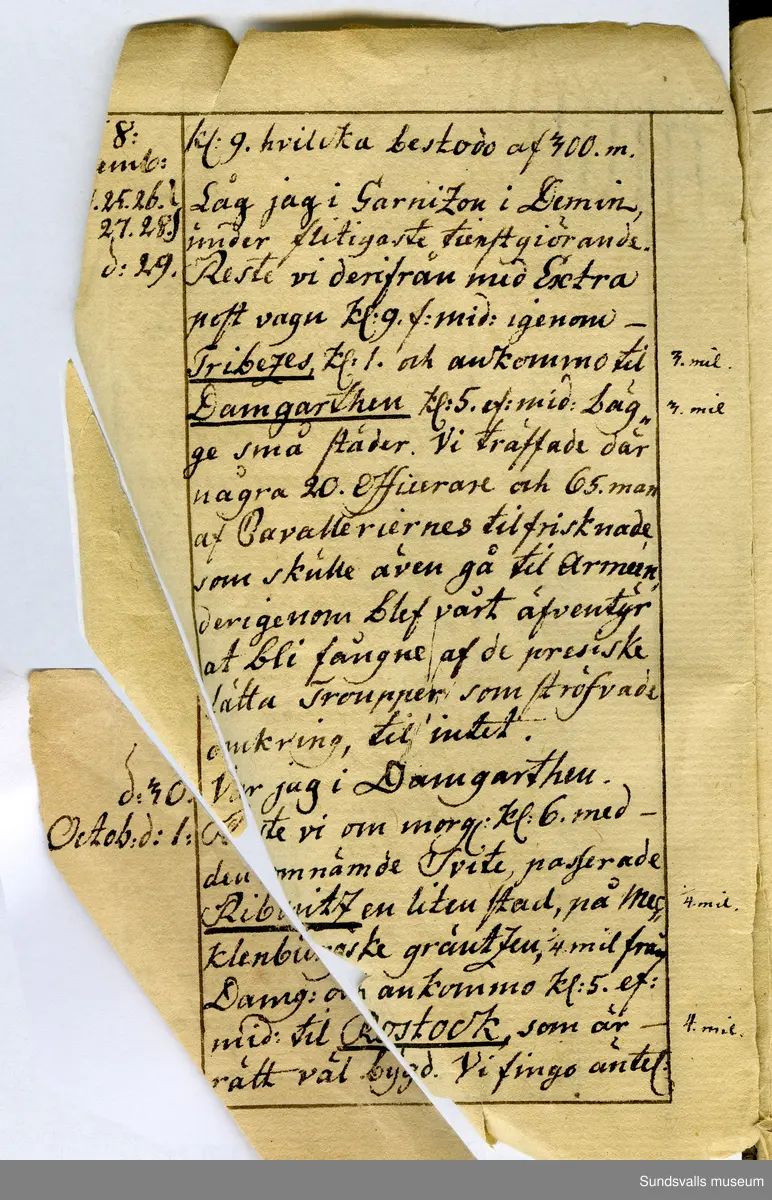 8: kl: 9. hvilcka bestodo af 300. m.
emb:
25. 26. Låg jag i Garnizon i Demin,
27. 28. under flitigaste tienstgiörande.
d: 29. Reste vi derifrån med Extra
post vagn kl: 9. f: mid: igenom –
Tribezes, kl: 1. och ankommo til 3. mil.
Damgarthen kl: 5. ef: mid: båg„ 3. mil
ge små städer. Vi träffade där
några 20. Officerare och 65. man
af Cavalleriernes tilfrisknade
som skulle även gå til Armeen,
derigenom blef vårt äfventyr
at bli fångne af de preusiske
lätta Troupper som ströfvade
omkring, til intet.
d: 30. Var jag i Damgarthen.
Octob: d: 1: Reste vi om morg: kl: 6. med –
den omnämde Svite, passerade
Ribnitz en liten stad, på Mec„ 1/4 mil.
klenburgske gräntzen, 1/4 mil från
Damg: och ankommo kl: 5. ef:
mid: til Rostock, som är – 4. mil.
rätt väl bygd. Vi fingo äntel:
Sundsvalls museum